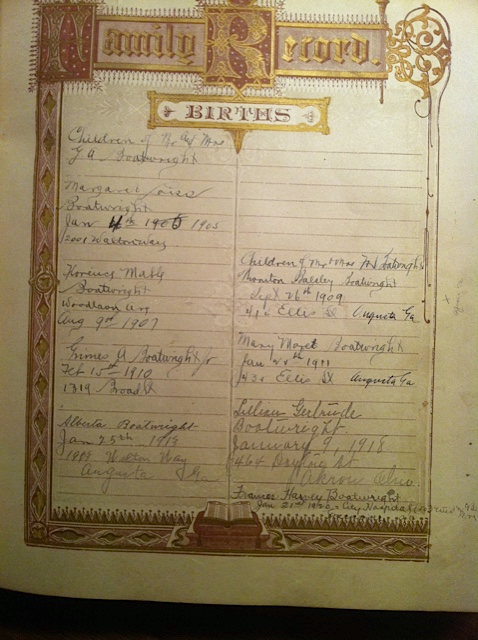 Family Record.
BIRTHS
Children of Mr & Mrs
G A Boatwright
Margaret
Boatwright
Jan 4th 1905 1905
2001 Walton Way
Florence Mable
Boatwright
Woodlawn Ave
Aug 9th 1907
Grimes A Boatwright Jr
Feb 15th 1910
1319 Broad St
Alberta Boatwright
Jan 25th 1919
Walton Way
Augusta Ga
Children of Mr & Mrs Boatwright
Boatwright
Sept 26th 1909
Ellis St Augusta Ga
Mary Boatwright
Jan 1911
Ellis St Augusta Ga
Lillian Gertrude
Boatwright
January 9, 1918
464 St
Akron Ohio
Frances Harvey Boatwright
Jan 21st City Hospital